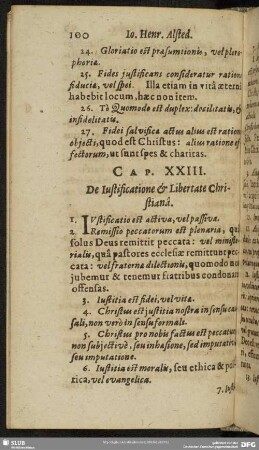 100 Io. Henr. Alsted.
24. Gloriatio est præsumtionis, vel plero-
phoriæ.
25. Fides justificans consideratur ratione
fiduciæ, vel spei. Illa etiam in vitâ æternâ
habebit locum, hæc non item.
26. Τὸ Quomodo est duplex: docilitatis, &
infidelitatis.
27. Fidei salvificæ actus alius est ratione
objecti, quod est Christus: alius ratione ef-
fectorum, ut sunt spes & charitas.
CAP. XXIII.
De Iustificatione & Libertate Chri-
stianâ.
1. IVstificatio est activa, vel passiva.
2. Remissio peccatorum est plenaria, quâ
solus Deus remittit peccata: vel ministe-
rialis, quâ pastores ecclesiæ remittunt pec-
cata: vel fraternæ dilectionis, quomodo nos
jubemur & tenemur fratribus condonare
offensas.
3. Iustitia est fidei, vel vitæ.
4. Christus est justitia nostra in sensu cau-
sali, non verò in sensu formali.
5. Christus pro nobis factus est peccatum
non subjectivè, seu inhæsione, sed imputativè
seu imputatione.
6. Iustitia est moralis, seu ethica & poli-
tica, vel evangelica.
7. Iusti-
SLUB
DFG